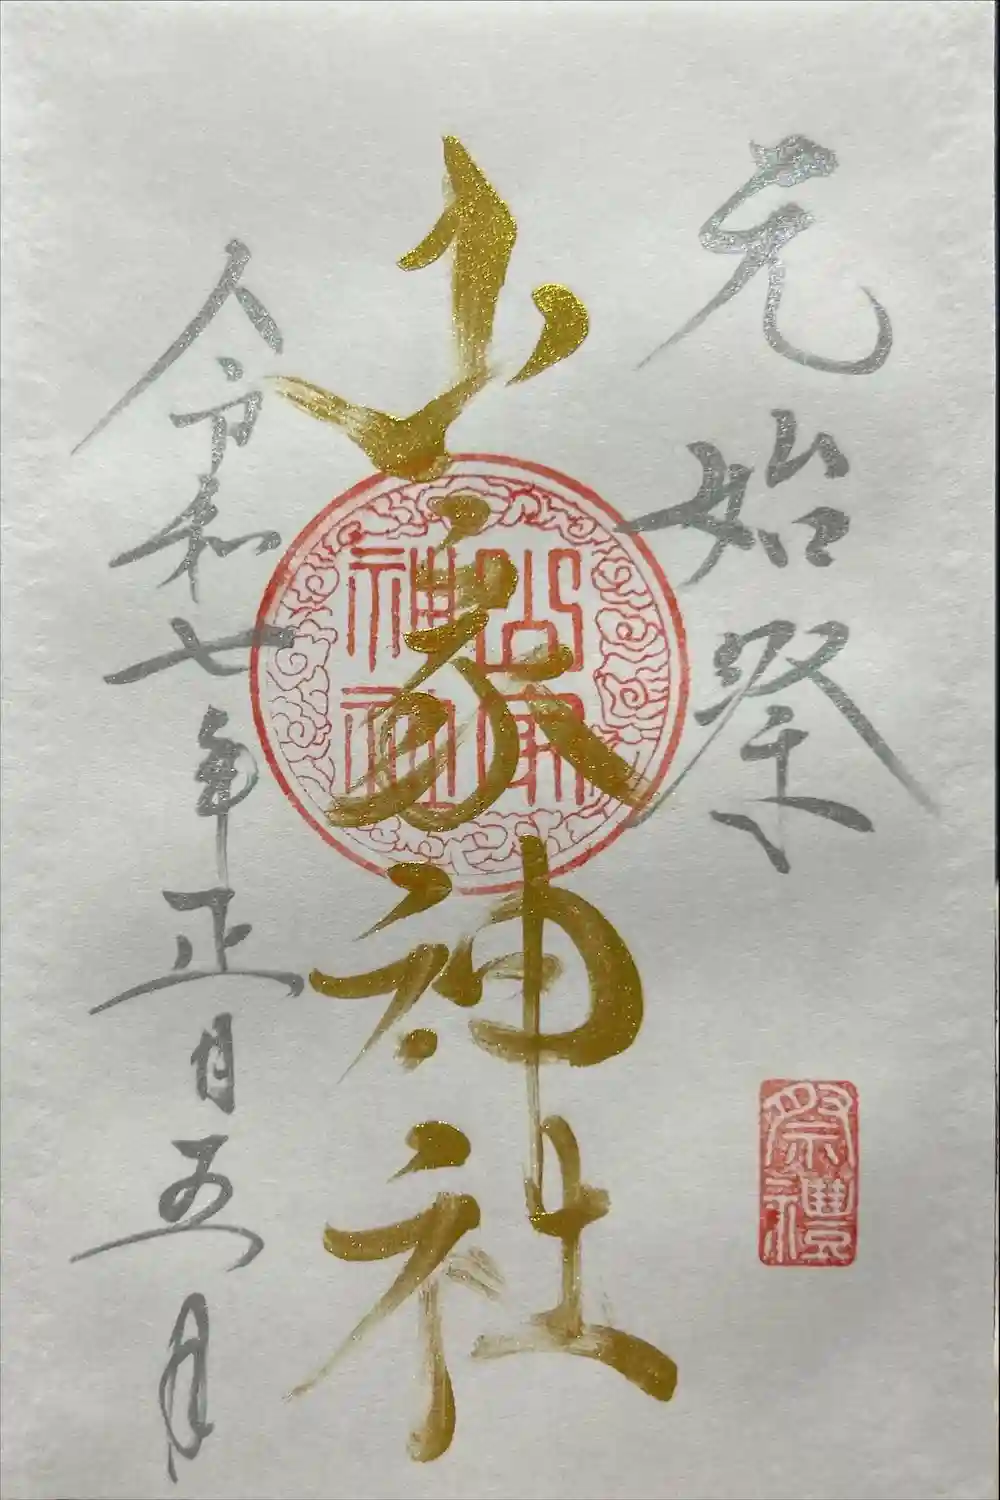 元始祭
山家神社
山家神社
令和七年正月五日
祭禮